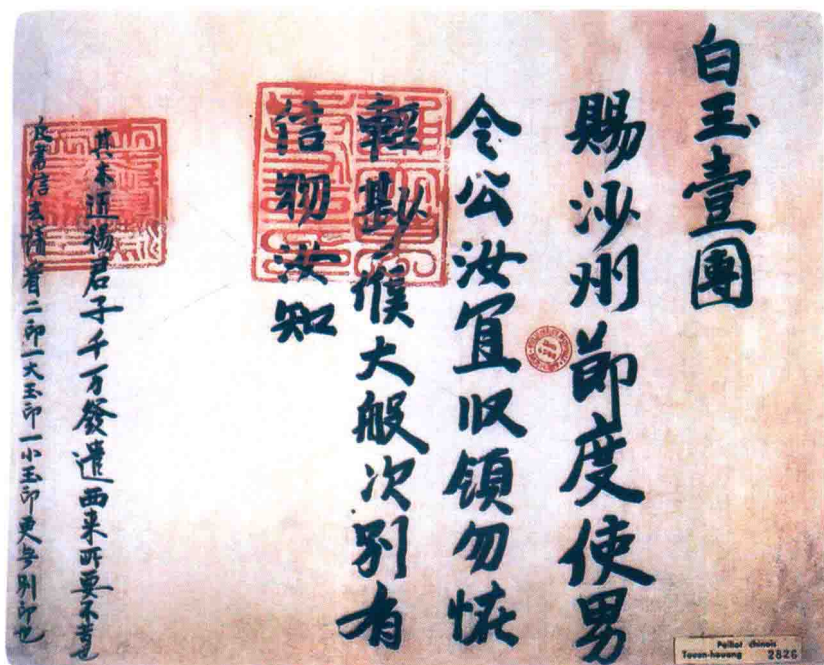 白玉壹團
賜沙州節度使男
令公汝宜收領勿恠
輕尠候大般次別有
信物汝知
其木近楊君子千万發遣西来所要不昔也
凡書信去請看二印一大玉印一小玉印更无別印也
Pelliot chinois
Touen-houang 2826